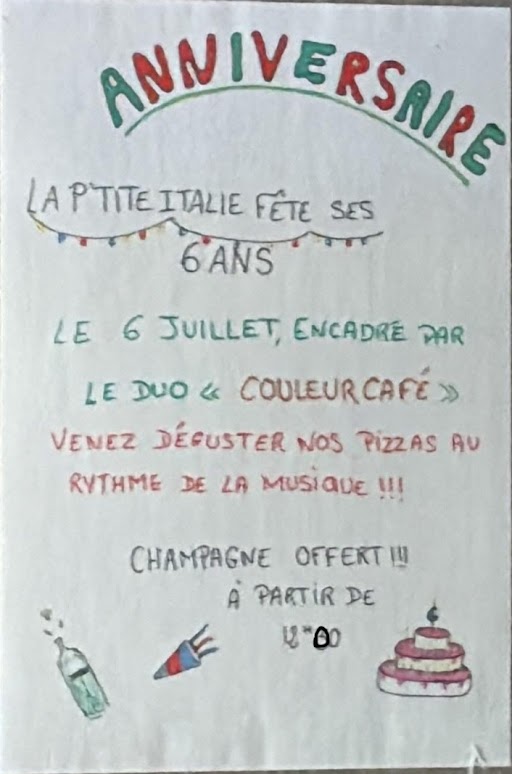 ANNIVERSAIRE
LA P'TITE ITALIE FÊTE SES
6 ANS
LE 6 JUILLET, ENCADRÉ PAR
LE DUO « COULEUR CAFÉ »
VENEZ DÉGUSTER NOS PIZZAS AU
RYTHME DE LA MUSIQUE !!!
CHAMPAGNE OFFERT !!!
À PARTIR DE
6